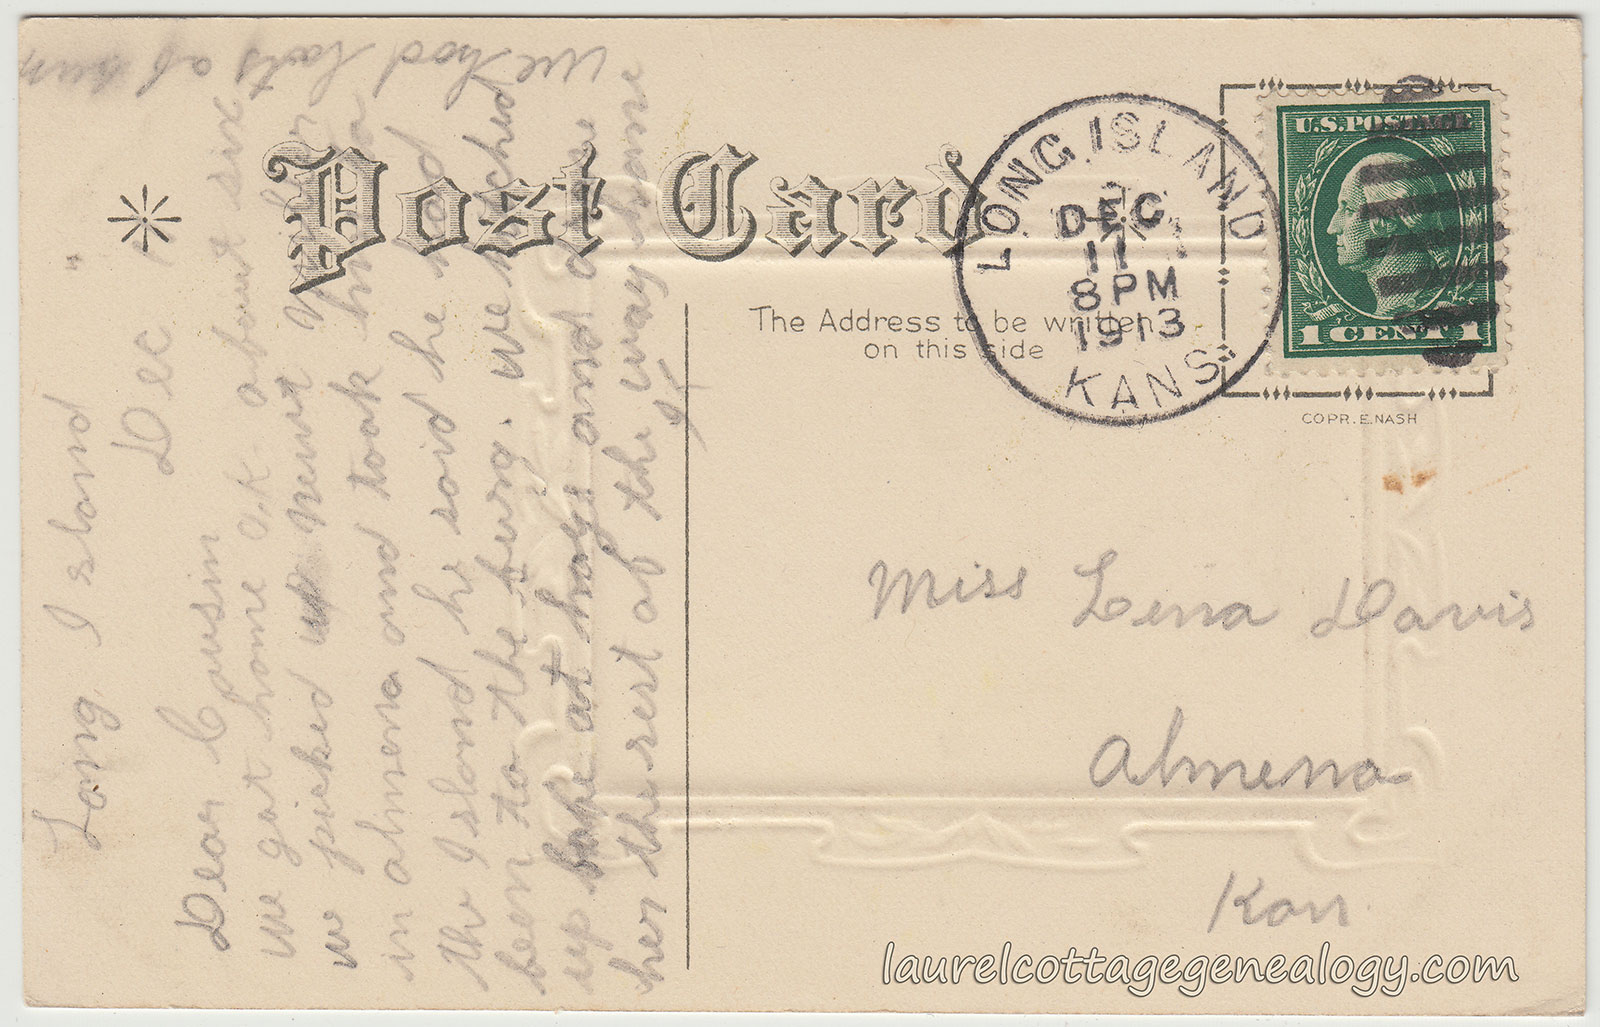 Post Card
The Address to be written
on this side
LONG ISLAND
DEC
11
8 PM
1913
KANS.
U.S. POSTAGE
1 CENT 1
COPR. E. NASH
Miss Lena Davis
Almena
Kans
Long Island
Dec
Dear Cousin
we got home o.k. about six
we picked up newt
in almena and took him to
the Island he said he had
been to the burg. we hiched
up babe at hays and drove
her the rest of the way home
we had lots of fun
laurelcottagegenealogy.com